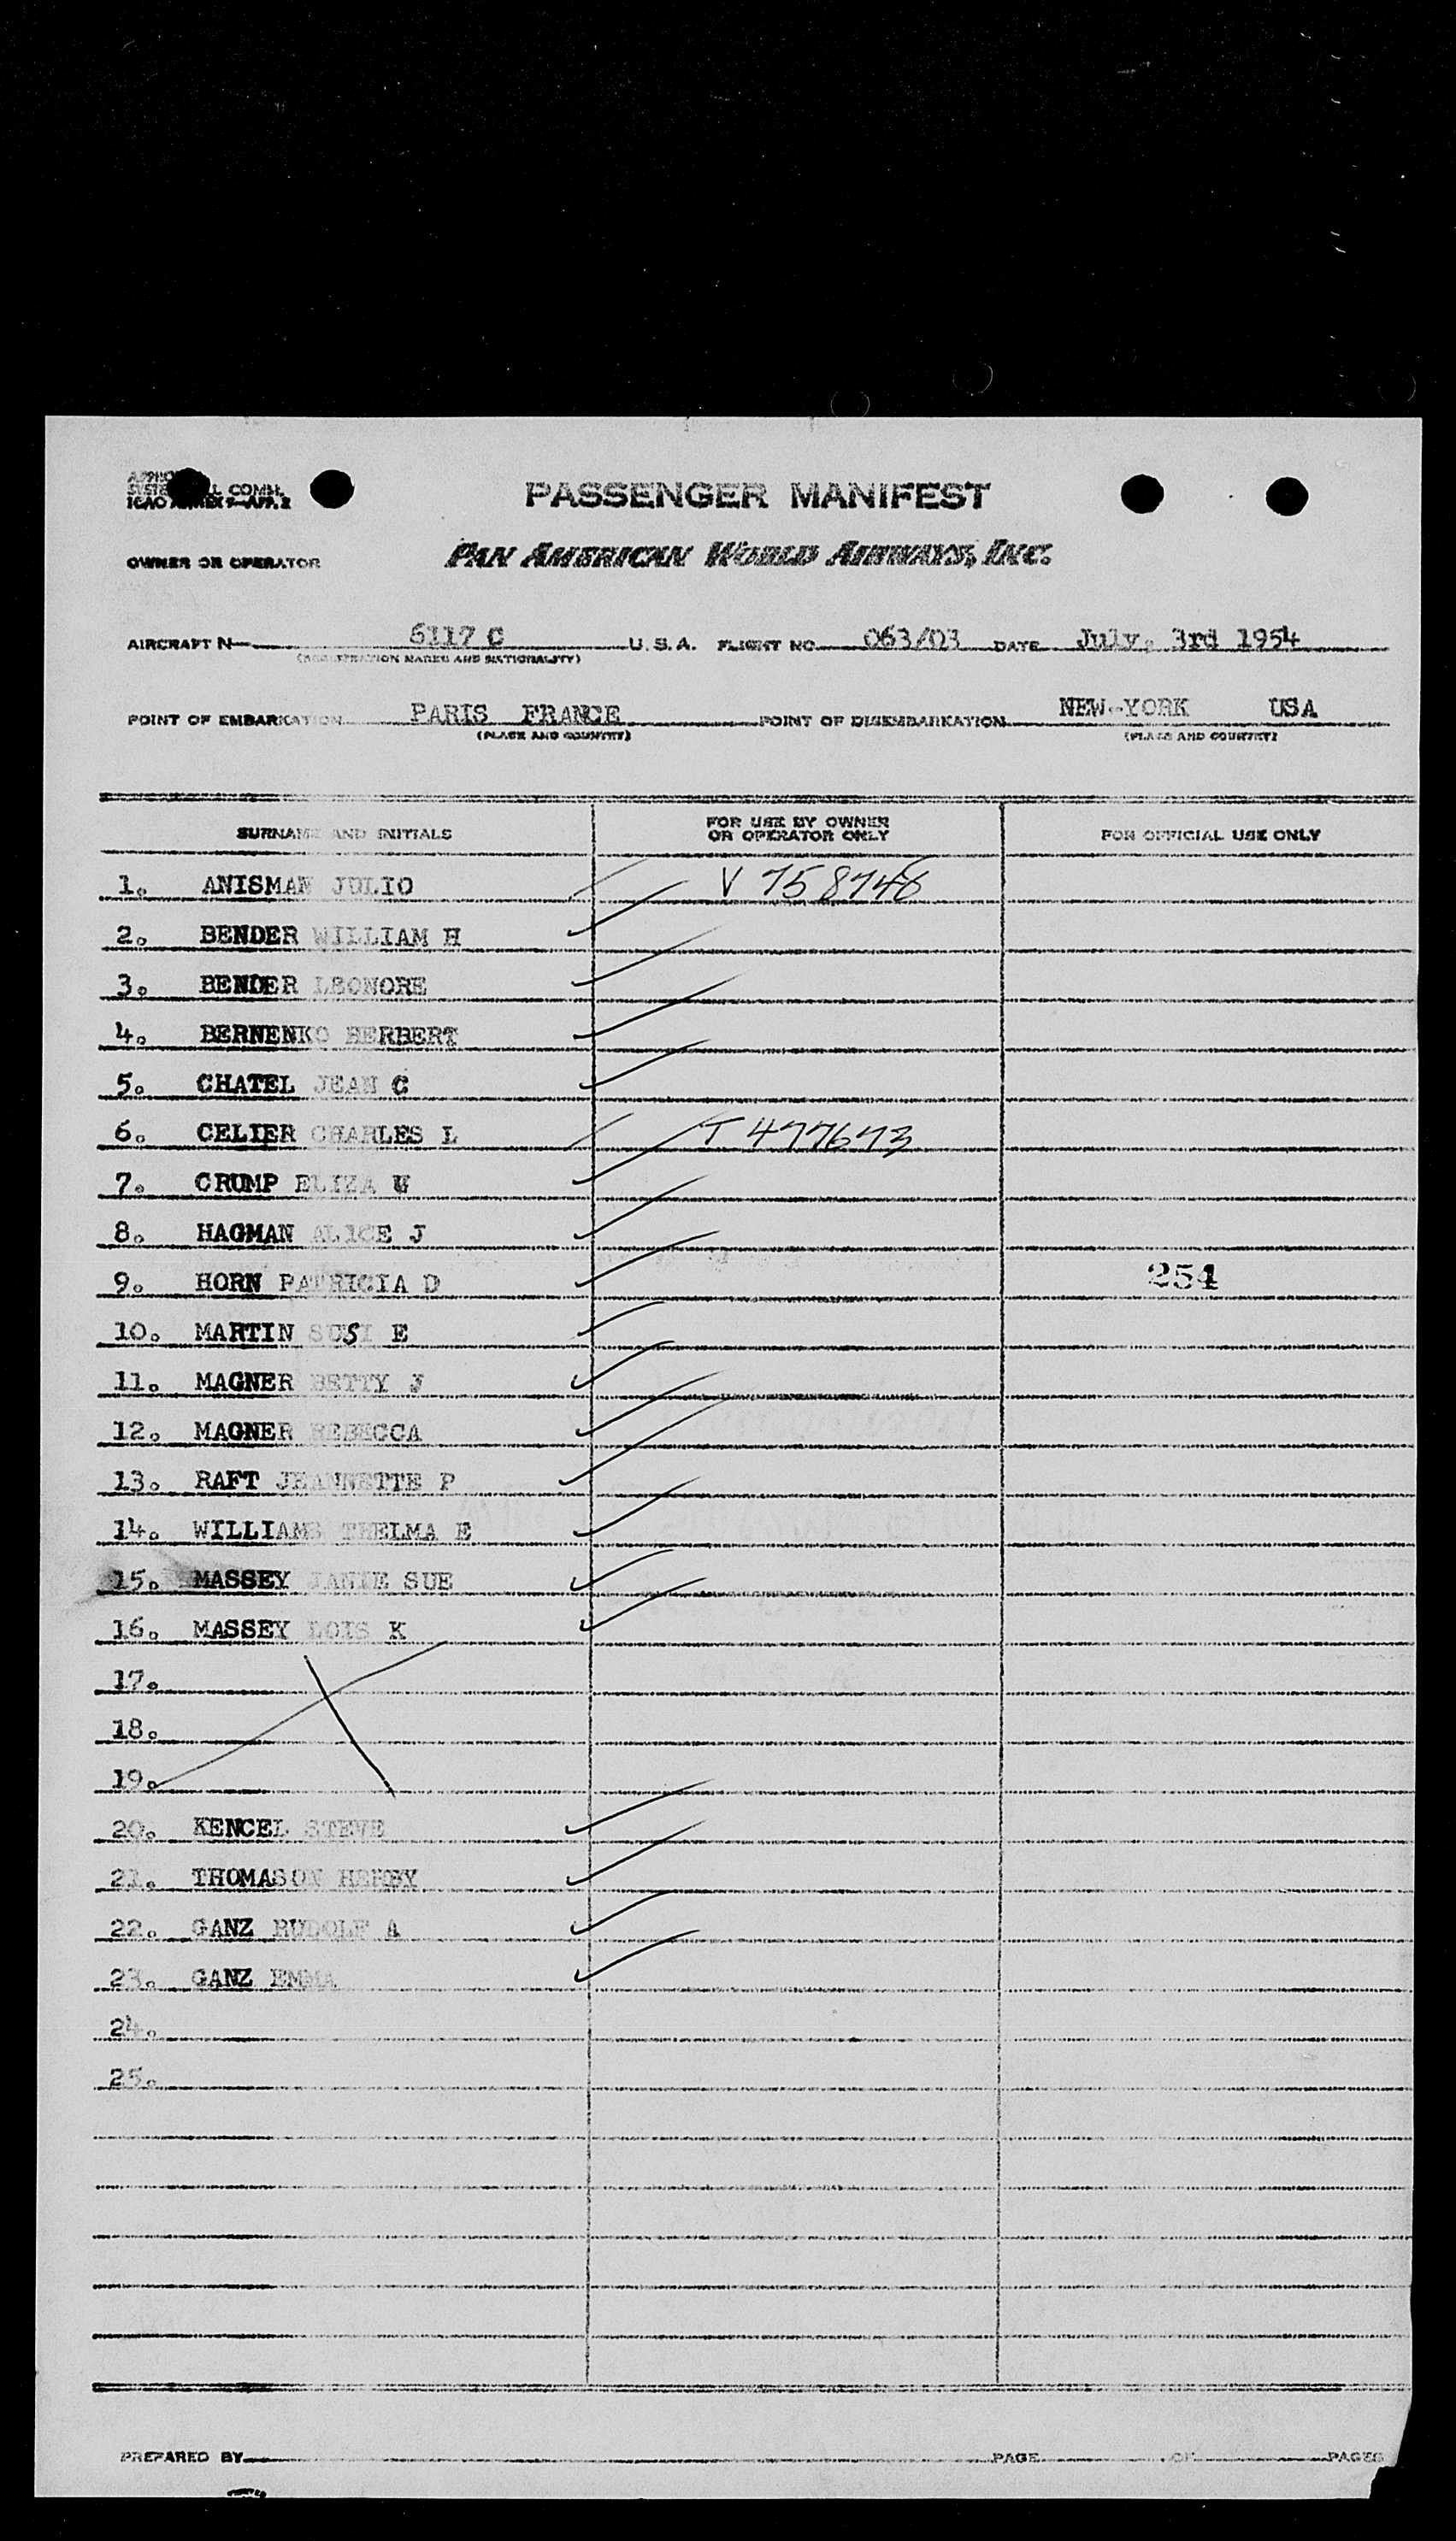 APPRO
SYSTE L COMM.
ICAO ANNEX 9—APP. 2
PASSENGER MANIFEST
OWNER OR OPERATOR PAN AMERICAN WORLD AIRWAYS, INC.
AIRCRAFT N— 6117 C U. S. A. FLIGHT NO. 063/03 DATE July, 3rd 1954
(REGISTRATION MARKS AND NATIONALITY)
POINT OF EMBARKATION PARIS FRANCE POINT OF DISEMBARKATION NEW-YORK USA
(PLACE AND COUNTRY) (PLACE AND COUNTRY)
SURNAME AND INITIALS FOR USE BY OWNER OR OPERATOR ONLY FOR OFFICIAL USE ONLY
1. ANISMAN JULIO V 758748
2. BENDER WILLIAM H
3. BENDER LEONORE
4. BERNENKO HERBERT
5. CHATEL JEAN C
6. CELIER CHARLES L T 477673
7. CRUMP ELIZA W
8. HAGMAN ALICE J
9. HORN PATRICIA D 254
10. MARTIN SUSI E
11. MAGNER BETTY J
12. MAGNER REBECCA
13. RAFT JEANNETTE P
14. WILLIAMS THELMA E
15. MASSEY JANIE SUE
16. MASSEY LOIS K
17.
18.
19.
20. KENCEL STEVE
21. THOMASON
22. GANZ RUDOLF A
23. GANZ EMMA
24.
25.
PREPARED BY PAGE OF PAGES